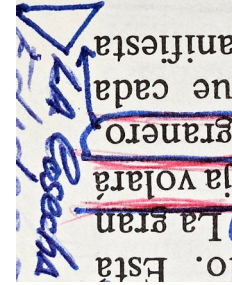 o. Está
La gran
ja volará
granero
que cada
anifiesta
LA Cosecha